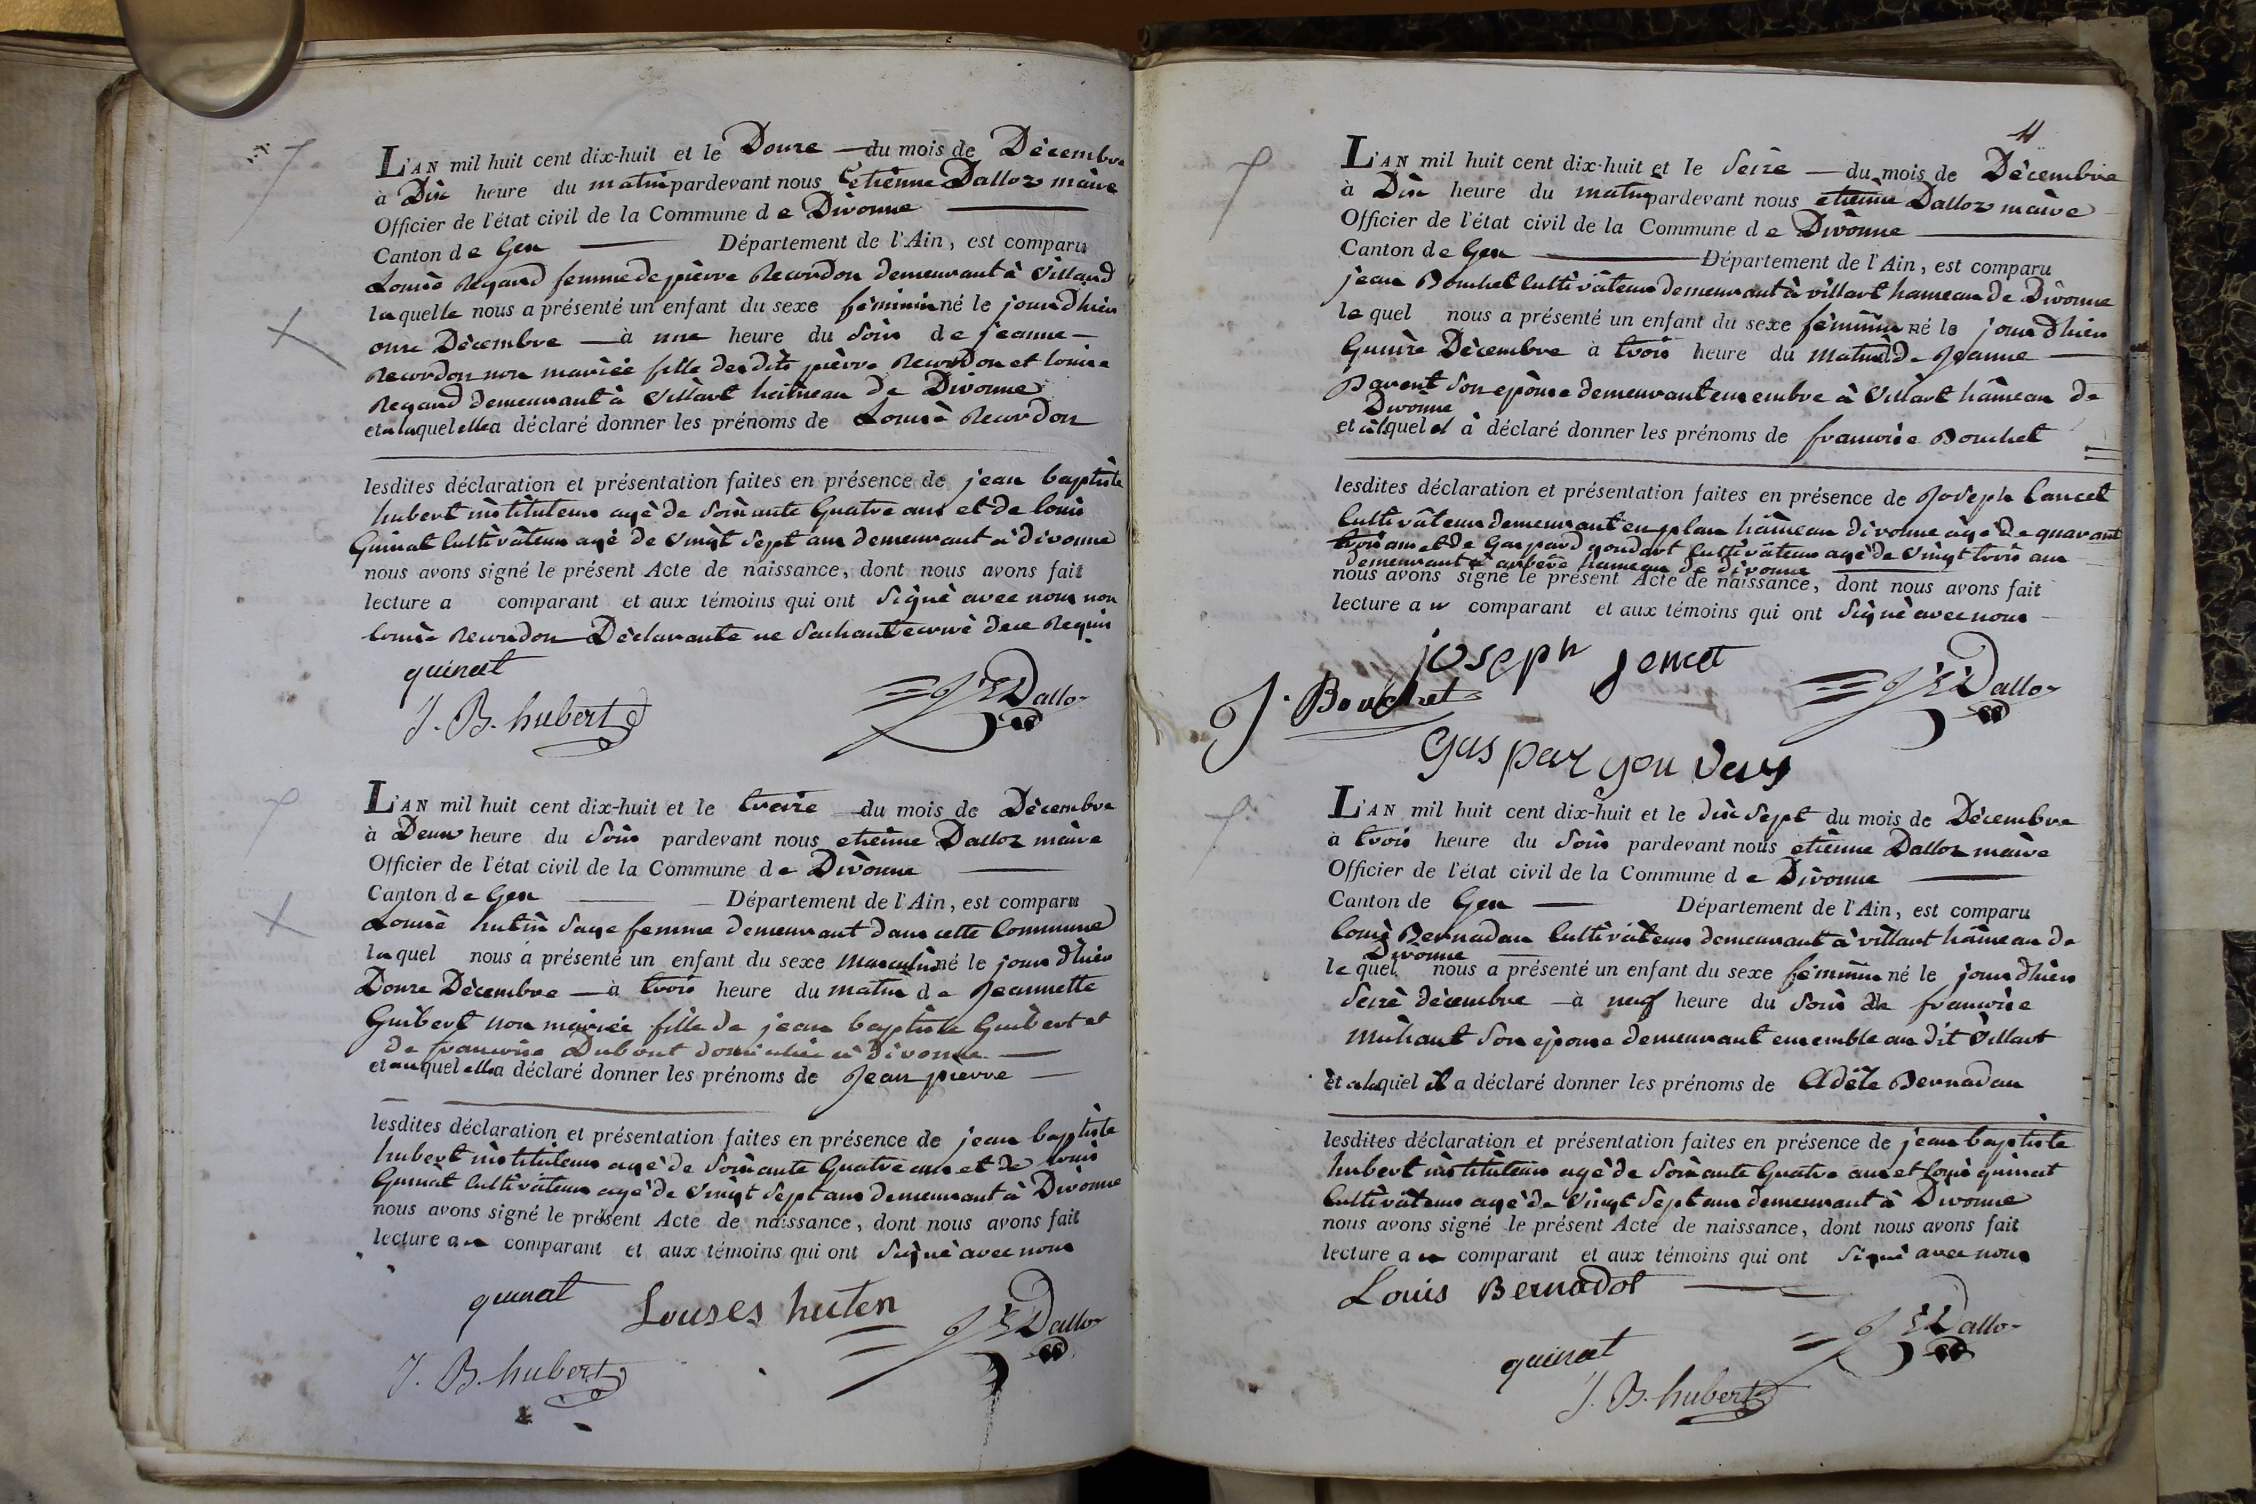 L'AN mil huit cent dix-huit et le Douze du mois de Décembre
à Dix heure du matin pardevant nous etiénne Dalloz màire
Officier de l'état civil de la Commune de Divonne
Canton de Gex Département de l'Ain, est comparu
Louise Regard femme de pièrre Recordon demeurant à Villard
laquelle nous a présenté un enfant du sexe féminin né le jour D'hier
onze Décembre à une heure du Soir de jeanne
Recordon non mariée fille des dits pièrre Recordon et louise
Regard demeurant à Villart hameau de Divonne
et a laquel elle a déclaré donner les prénoms de Louise Recordon
lesdites déclaration et présentation faites en présence de jean baptiste
hubert instituteur agé de Soixante Quatre ans et de louis
Quinat Cultivateur agé de Vingt Sept ans demeurant à divonne
nous avons signé le présent Acte de naissance, dont nous avons fait
lecture a comparant et aux témoins qui ont Signé avec nous non
louise Recordon Déclarante ne Sachant ecrire de ce Requis
quinat
J. B. hubert
Dalloz
L'AN mil huit cent dix-huit et le treize du mois de Décembre
à Deux heure du Soir pardevant nous etiénne Dalloz màire
Officier de l'état civil de la Commune de Divonne
Canton de Gex Département de l'Ain, est comparu
Louise hutin Sage femme demeurant dans cette Commune
laquel nous a présenté un enfant du sexe Masculin né le jour d'hier
Douze Décembre à trois heure du matin de Jeannette
Guibert non mariée fille de jean baptiste Guibert et
de francoise Dubout domiciliée à divonne
et auquel elle a déclaré donner les prénoms de Jean pierre
lesdites déclaration et présentation faites en présence de jean baptiste
hubert instituteur agé de Soixante Quatre ans et de louis
Quinat Cultivateur agé de Vingt Sept ans demeurant à Divonne
nous avons signé le présent Acte de naissance, dont nous avons fait
lecture a comparant et aux témoins qui ont Signé avec nous
quinat
Louises huten
Dalloz
J. B. hubert
L'AN mil huit cent dix-huit et le Seize du mois de Décembre
à Dix heure du matin pardevant nous etiénne Dalloz màire
Officier de l'état civil de la Commune de Divonne
Canton de Gex Département de l'Ain, est comparu
jean Bouchet Cultivateur demeurant à villart hameau de Divonne
lequel nous a présenté un enfant du sexe féminin né le jour d'hier
Quinze Décembre à trois heure du matin de Jeanne
Parent Son epouse demeurant ensembre à Villart hâmeau de
Divonne
et quel il à déclaré donner les prénoms de francoise Bouchet
lesdites déclaration et présentation faites en présence de Joseph
Cultivateur demeurant en plan hâmeau divonne âgé de quarant
trois ans et de Gaspard goudart Cultivateur agé de Vingt trois ans
demeurant à arbère hameau de divonne
nous avons signé le présent Acte de naissance, dont nous avons fait
lecture au comparant et aux témoins qui ont Signé avec nous
joseph
J. Bouchet
Dalloz
Gaspar
L'AN mil huit cent dix-huit et le dix Sept du mois de Décembre
à trois heure du Soir pardevant nous etiénne Dalloz màire
Officier de l'état civil de la Commune de Divonne
Canton de Gex Département de l'Ain, est comparu
louis Bernadau Cultivateur demeurant à villart hâmeau de
Divonne
lequel nous a présenté un enfant du sexe féminin né le jour d'hier
Seize décembre à neuf heure du Soir de francoise
Michaut Son epouse demeurant ensemble au dit Villart
et a laquel il a déclaré donner les prénoms de Adèle Bernadau
lesdites déclaration et présentation faites en présence de jean baptiste
hubert instituteur agé de Soixante Quatre ans et louis quinat
Cultivateur agé de Vingt Sept ans demeurant à Divonne
nous avons signé le présent Acte de naissance, dont nous avons fait
lecture au comparant et aux témoins qui ont Signé avec nous
Louis Bernadot
Dalloz
quinat
J. B. hubert